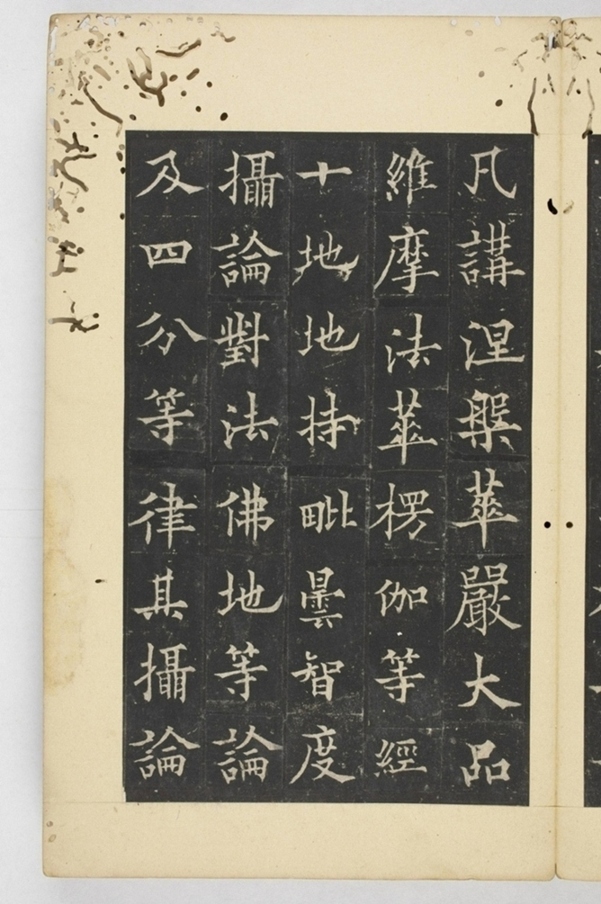 凡講涅槃華嚴大品
維摩法華楞伽等經
十地地持毗曇智度
攝論對法佛地等論
及四分等律其攝論